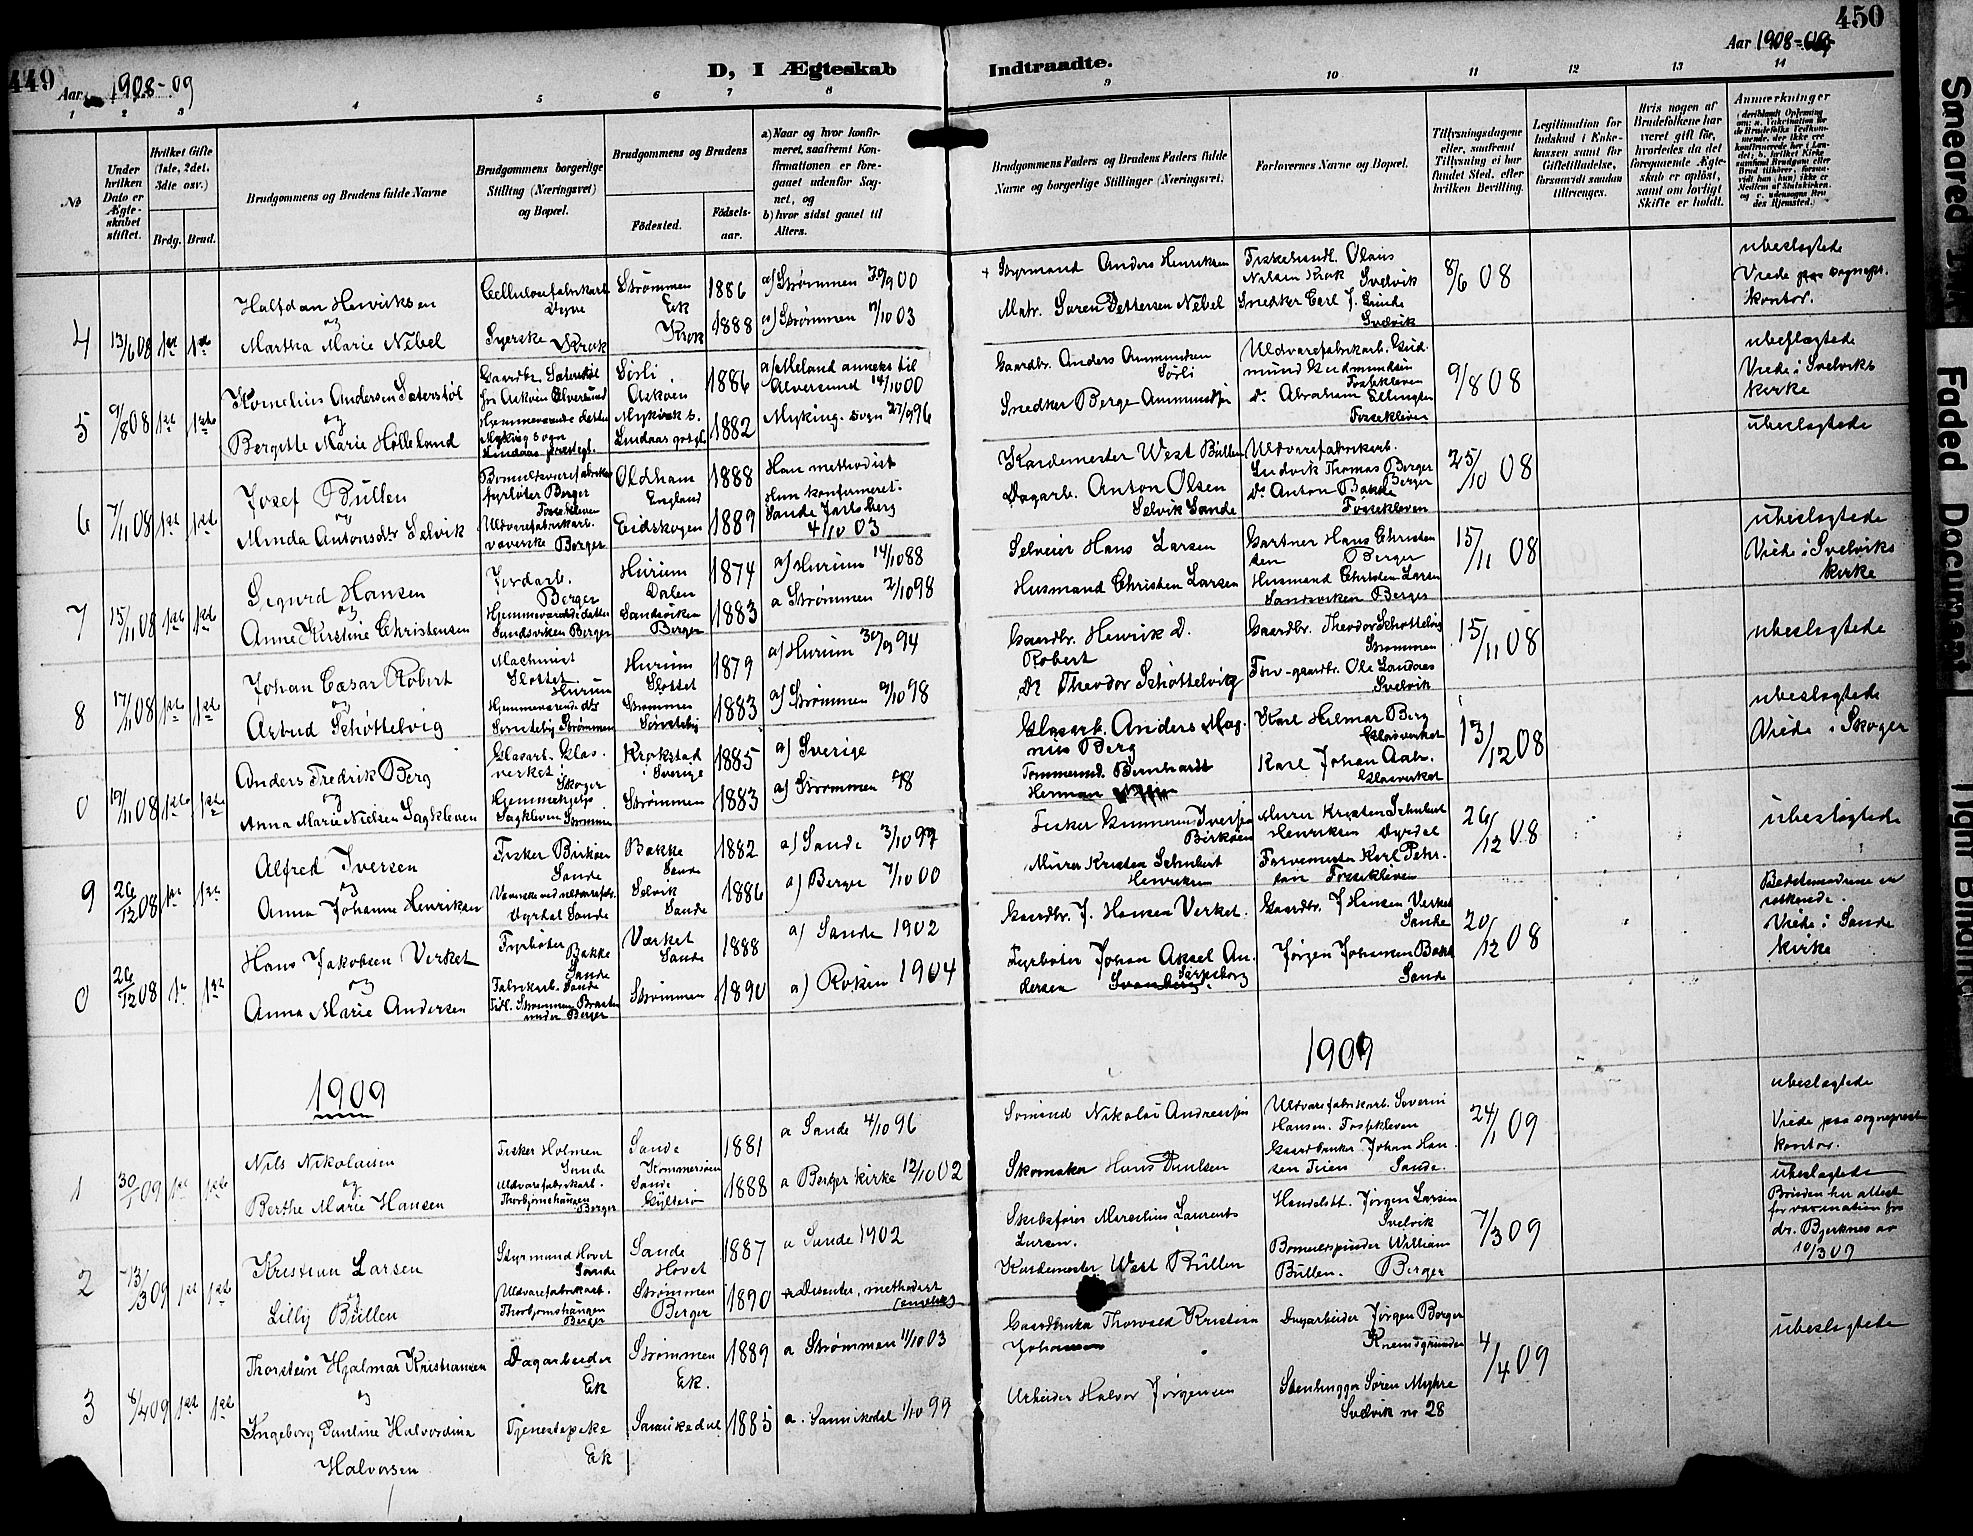 449
Aar 1908-09
D, I Ægteskab
Indtraadte.
Aar 1908-09
450
1
2
3
4
5
6
7
8
9
10
11
12
13
14
No
Under hvilken Dato er Ægteskabet stiftet.
Hvilket Gifte (1ste, 2det, 3die osv.)
Brdg.
Brud.
Brudgommens og Brudens fulde Navne
Brudgommens borgerlige Stilling (Næringsvei) og Bopæl.
Brudgommens og Brudens
Fødested.
Fødsels-aar.
a) Naar og hvor konfirmeret, saafremt Konfirmationen er foregaaet udenfor Sognet, og
b) hvor sidst gaaet til Alters.
Brudgommens Faders og Brudens Faders fulde Navne og borgerlige Stillinger (Næringsvei.
Forlovernes Navne og Bopæl.
Tillysningsdagene eller, saafremt Tillysning ei har fundet Sted, efter hvilken Bevilling.
Legitimation for Indskud i Enkekassen samt for Giftetilladelse, forsaavidt saadan tiltrænges.
Hvis nogen af Brudefolkene har været gift før, hvorledes da det foregaaende Ægteskab er opløst, samt om lovligt Skifte er holdt.
Anmærkninger
4
13/6 08
1st
1st
Halfdan Henriksen
og
Martha Marie Nebel
Cellulosefabrikarb.
Syerske Krok
Strømmen
Ek
Krok
1886
1888
a) Strømmen 30/9 00
a) Strømmen 11/10 03
Styrmand Anders Henriksen
Matr. Søren Pettersen Nebel
Fiskehandl. Olaus
Nilsen Krok Svelvik
Snedker Carl J. Grinde
Svelvik
8/6 08
ubeslægtede
Viede paa sognepr.
kontor.
5
9/8 08
1st
1ste
Kornelius Andersen Sæterstøl
og
Bergitte Marie Hølleland
Hjemmeværende datter
Myking sogn
Lindaas præstegj.
Sørli
Askøen
Lindaas prstgj.
1886
1882
a) Meland anneks til
Alversund 14/10 00
Myking. sogn 27/9 96
Gaardbr. Anders Ammundsen
Sørli
Snedker Berge Ammundsen
Uldvarefabrikarb. Gud
mund Gudmundsen
Fossekleven
Do. Abraham Ellingsen
Fossekleven
9/8 08
ubeslægtede
Viede i Svelviks
kirke
6
7/11 08
1st
1st
Josef Büllen
og
Minda Antonsdtr Selvik
fyrbøter Berger
Fossekleven
Uldvarefabrikarb.
væverske Berger
Oldham
England
Eidskogen
1888
1889
Han methodist
Hun konfirmeret.
Sande Jarlsberg
4/10 03
Kardemester West Büllen
Dagarb. Anton Olsen
Selvik Sande
Uldvarefabrikarb.
Ludvik Thomas Berger
Do. Anton Bakke Berger
Fossekleven
25/10 08
ubeslægtede
7
15/11 08
1st
1st
Sigurd Hansen
og
Anne Kirstine Christensen
Jordarb.
Berger
Hjemmeværende datter
Sandsviken Berger
Hurum
Dalen
Sandsviken
Berger
1874
1883
a) Hurum 14/10 88
a Strømmen 2/10 98
Selveier Hans Larsen
Husmand Christen Larsen
Gartner Hans Christen
sen Berger
Husmand Christen Larsen
Sandsviken Berger
15/11 08
ubeslægtede
Viede i Svelviks
kirke
8
17/11 08
1st
1st
Johan Cæsar Robert
og
Astrud Schøttelvig
Machinist
Slottet
Hurum
Hjemmeværende dtr
Sørsteby Strømmen
Hurum
Slottet
Strømmen
Sørsteby
1879
1883
a) Hurum 30/9 94
a) Strømmen 9/10 98
Gaardbr. Henrik D.
Robert
Do Theodor Schøttelvig
Gaardbr. Theodor Schøttelvig
Strømmen
Forv.-gaardbr. Ole Sandaas
Svelvik
15/11 08
ubeslægtede
0
17/11 08
1ste
1ste
Anders Fredrik Berg
og
Anna Marie Nielsen Sagkleven
Glasarb. Glas-
verket i
Skoger
Hjemmehjelp
Sagkleven Strømmen
Krokstad
i Sverige
Strømmen
1885
1883
a) Sverige
a) Strømmen 98
Glasarb. Anders Mag-
nus Berg
Tømmermd. Bernhardt
Herman
Karl Hilmar Berg
Glasverket
Karl Johan
Glasverket
13/12 08
ubeslægtede
Viede i Skoger
9
26/12 08
1st
1st
Alfred Iversen
og
Anna Johanne Henriksen
Fisker Birkøen
Sande
Dyrdal Sande
Bakke
Sande
Selvik
Sande
1882
1886
a) Sande 3/10 97
a) Berger 7/10 00
Fisker Gunerius Iversen
Birkøen
Murer Kristen Schubert
Henriksen
Murer Kristen Schubert
Henriksen Dyrdal
Farvemester Karl Petter-
sen Fossekleven
26/12 08
ubeslægtede
0
26/12 08
1st
1st
Hans Jakobsen Verket
og
Anna Marie Andersen
Fyrbøter
Bakke
Sande
Fabrikarb. Sande
under Berger
Verket
Sande
Strømmen
1888
1890
a) Sande 1902
a) Røken 1904
Gaardbr. J. Hansen Verket.
Fyrbøter Johan Aksel An-
dersen Svanberg.
Sarpsborg
Gaardbr. J Hansen Verket
Sande
Jørgen Johansen Bakke
Sande
20/12 08
Bedstemødrene er
søskende.
Viede i Sande
kirke
1909
1909
1
30/1 09
1st
1ste
Nils Nikolaisen
og
Berthe Marie Hansen
Fisker Holmen
Sande
Uldvarefabrikarb.
Thorbjørnshaugen
Berger
Sande
Kommersøen
Sande
1881
1888
a Sande 4/10 96
a Berger kirke 12/10 02
Sømand Nikolai Andreassen
Skomaker Hans Paulsen
Uldvarefabrikarb. Severin
Hansen. Fossekleven
Gaardbruker Johan Han-
sen Teien Sande.
24/1 09
ubeslægtede
Viede paa sogneprestens
kontor.
2
13/3 09
1st
1st
Kristian Larsen
og
Lilly Büllen
Styrmand Hovet
Sande
Uldvarefabrikarb.
Thorbjørnshaugen
Berger
Sande
Hovet
Strømmen
Berger
1887
1890
a Sande 1902
Dissenter, methodist
(engelsk)
Skibsfører Marcelius Laurents
Larsen.
Kardemester West Büllen
Handelsbt. Jørgen Larsen
Svelvik
Bomuldspinder William
Büllen. Berger
7/3 09
ubeslægtede
Bruden har attest
for vaccination fra
dr. Bjerknes av
10/3 09
3
8/4 09
1st
1st
Thorstein Hjalmar Kristiansen
og
Ingeborg Pauline Halvordine
Halvorsen
Dagarbeider
Ek
Tjenestepike
Ek
Strømmen
Ek.
Sannikedal
1889
1885
a Strømmen 11/10 03
a. Sannikedal 1/10 99
Gaardbruker Thorvald Kristian
Johansen
Arbeider Halvor Jørgensen
Dagarbeider Jørgen Borger
Stenhugger Søren Myhre
Svelvik no 28
4/4 09
ubeslægtede
Smeared
Faded Document
Tight Binding